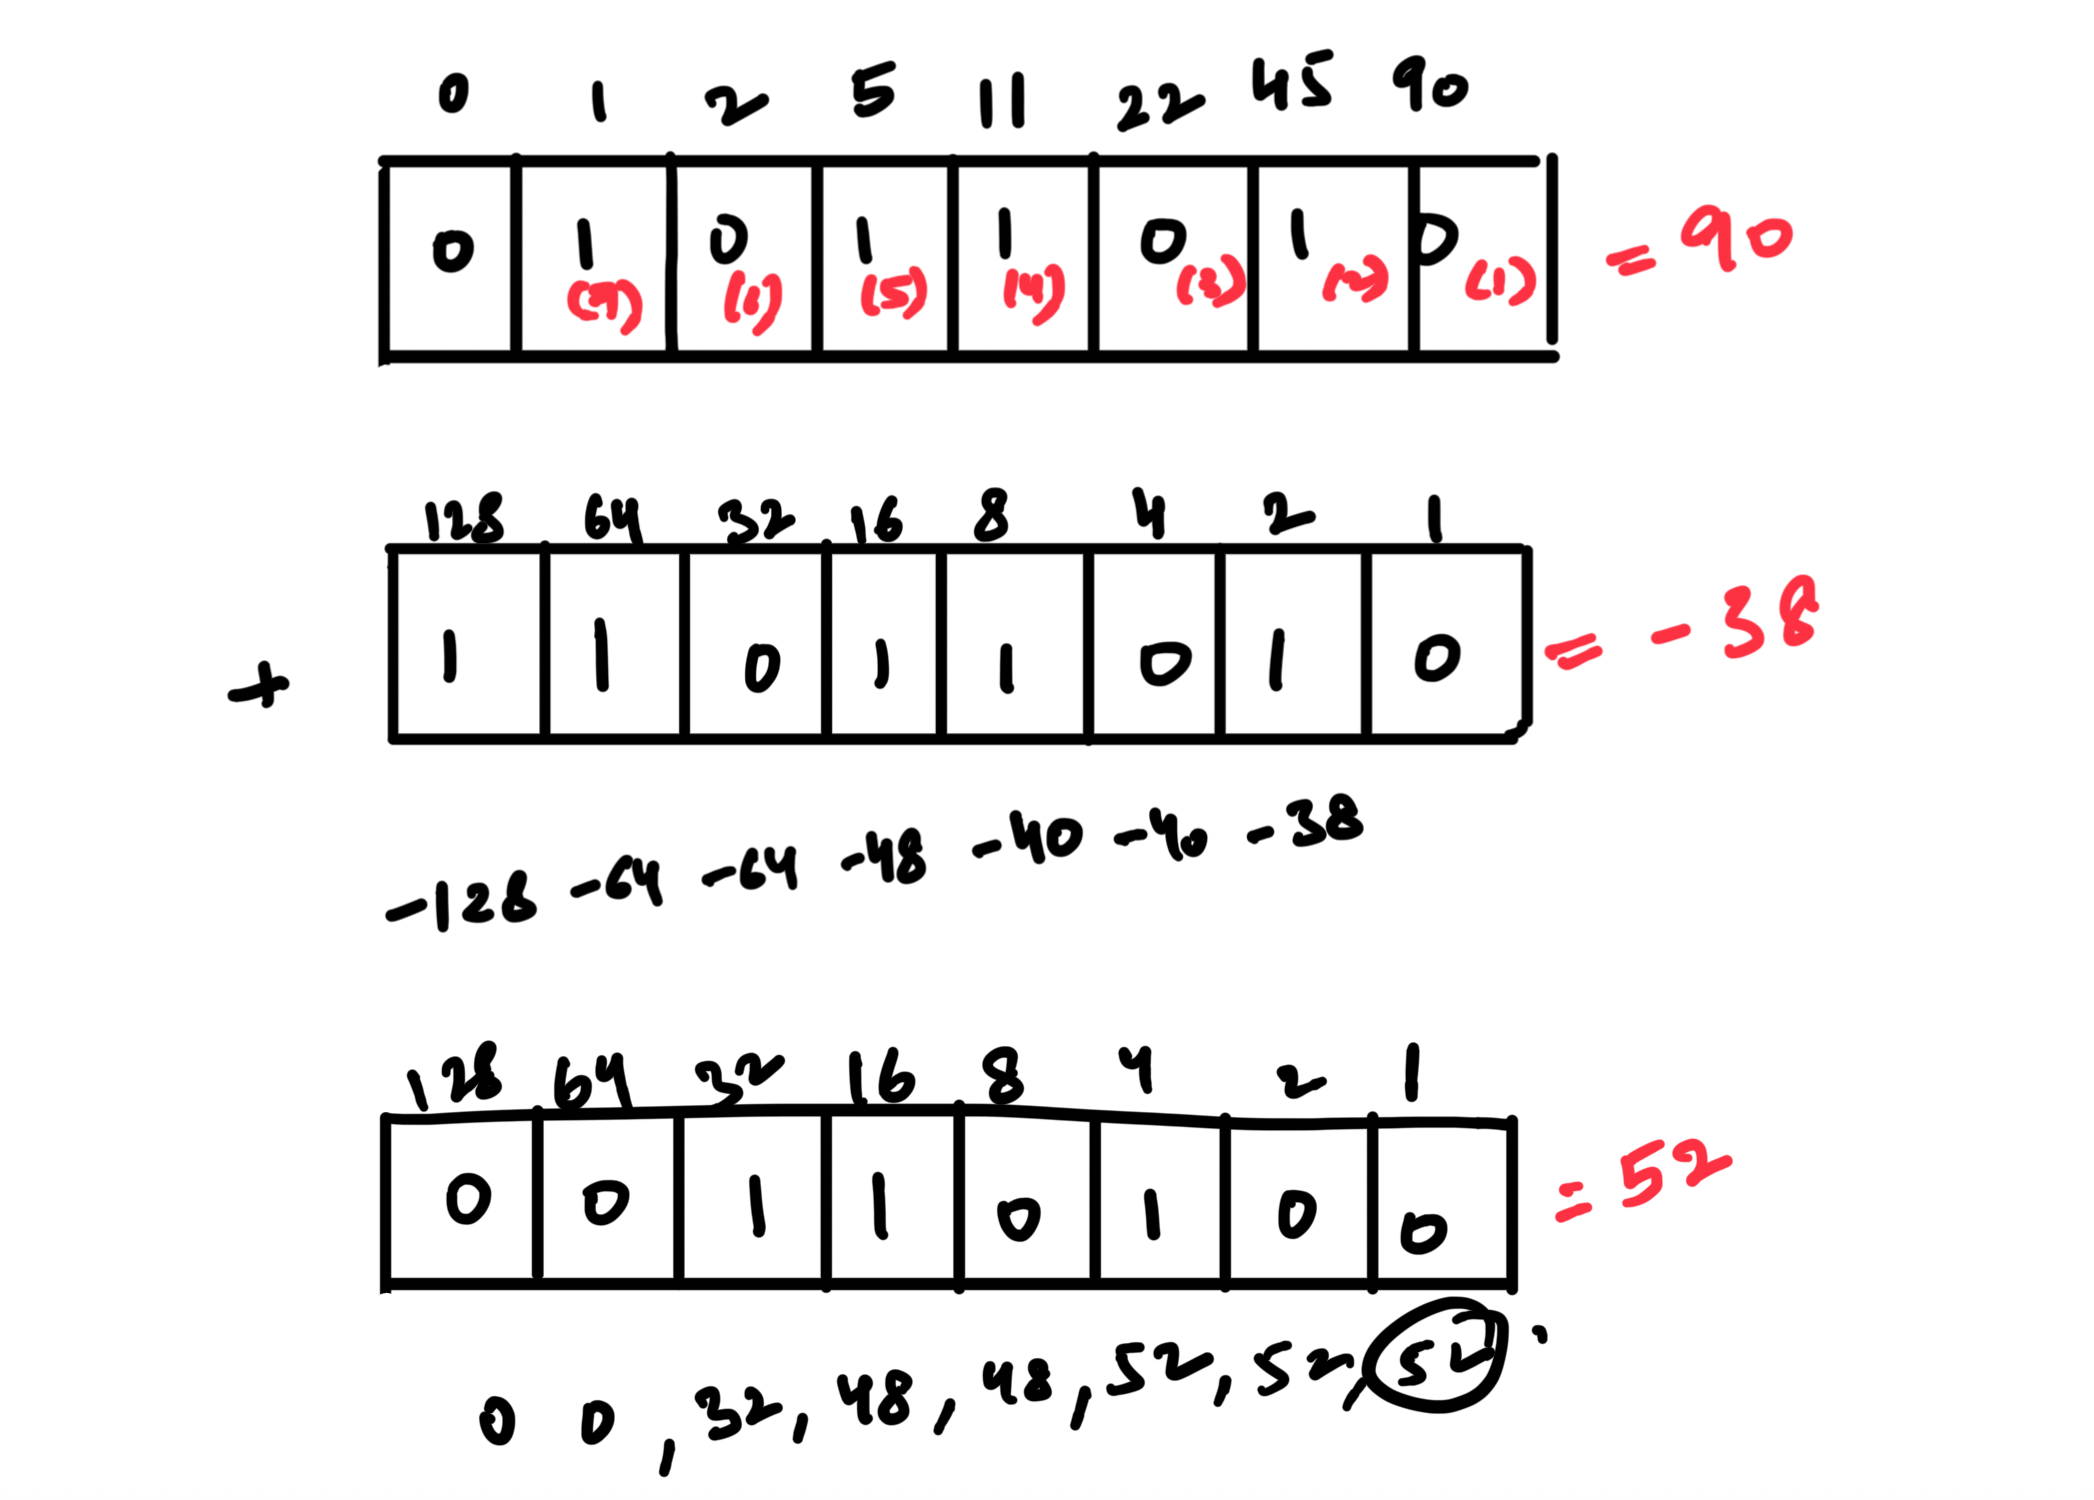 0 1 2 5 11 22 45 90
0 1 0 1 1 0 1 0 = 90
(7) (5) (4) (3) (2) (1)
128 64 32 16 8 4 2 1
+ 1 1 0 1 1 0 1 0 = -38
-128 -64 -64 -48 -40 -40 -38
128 64 32 16 8 4 2 1
0 0 1 1 0 1 0 0 = 52
0 0, 32, 48, 48, 52, 52, 52.